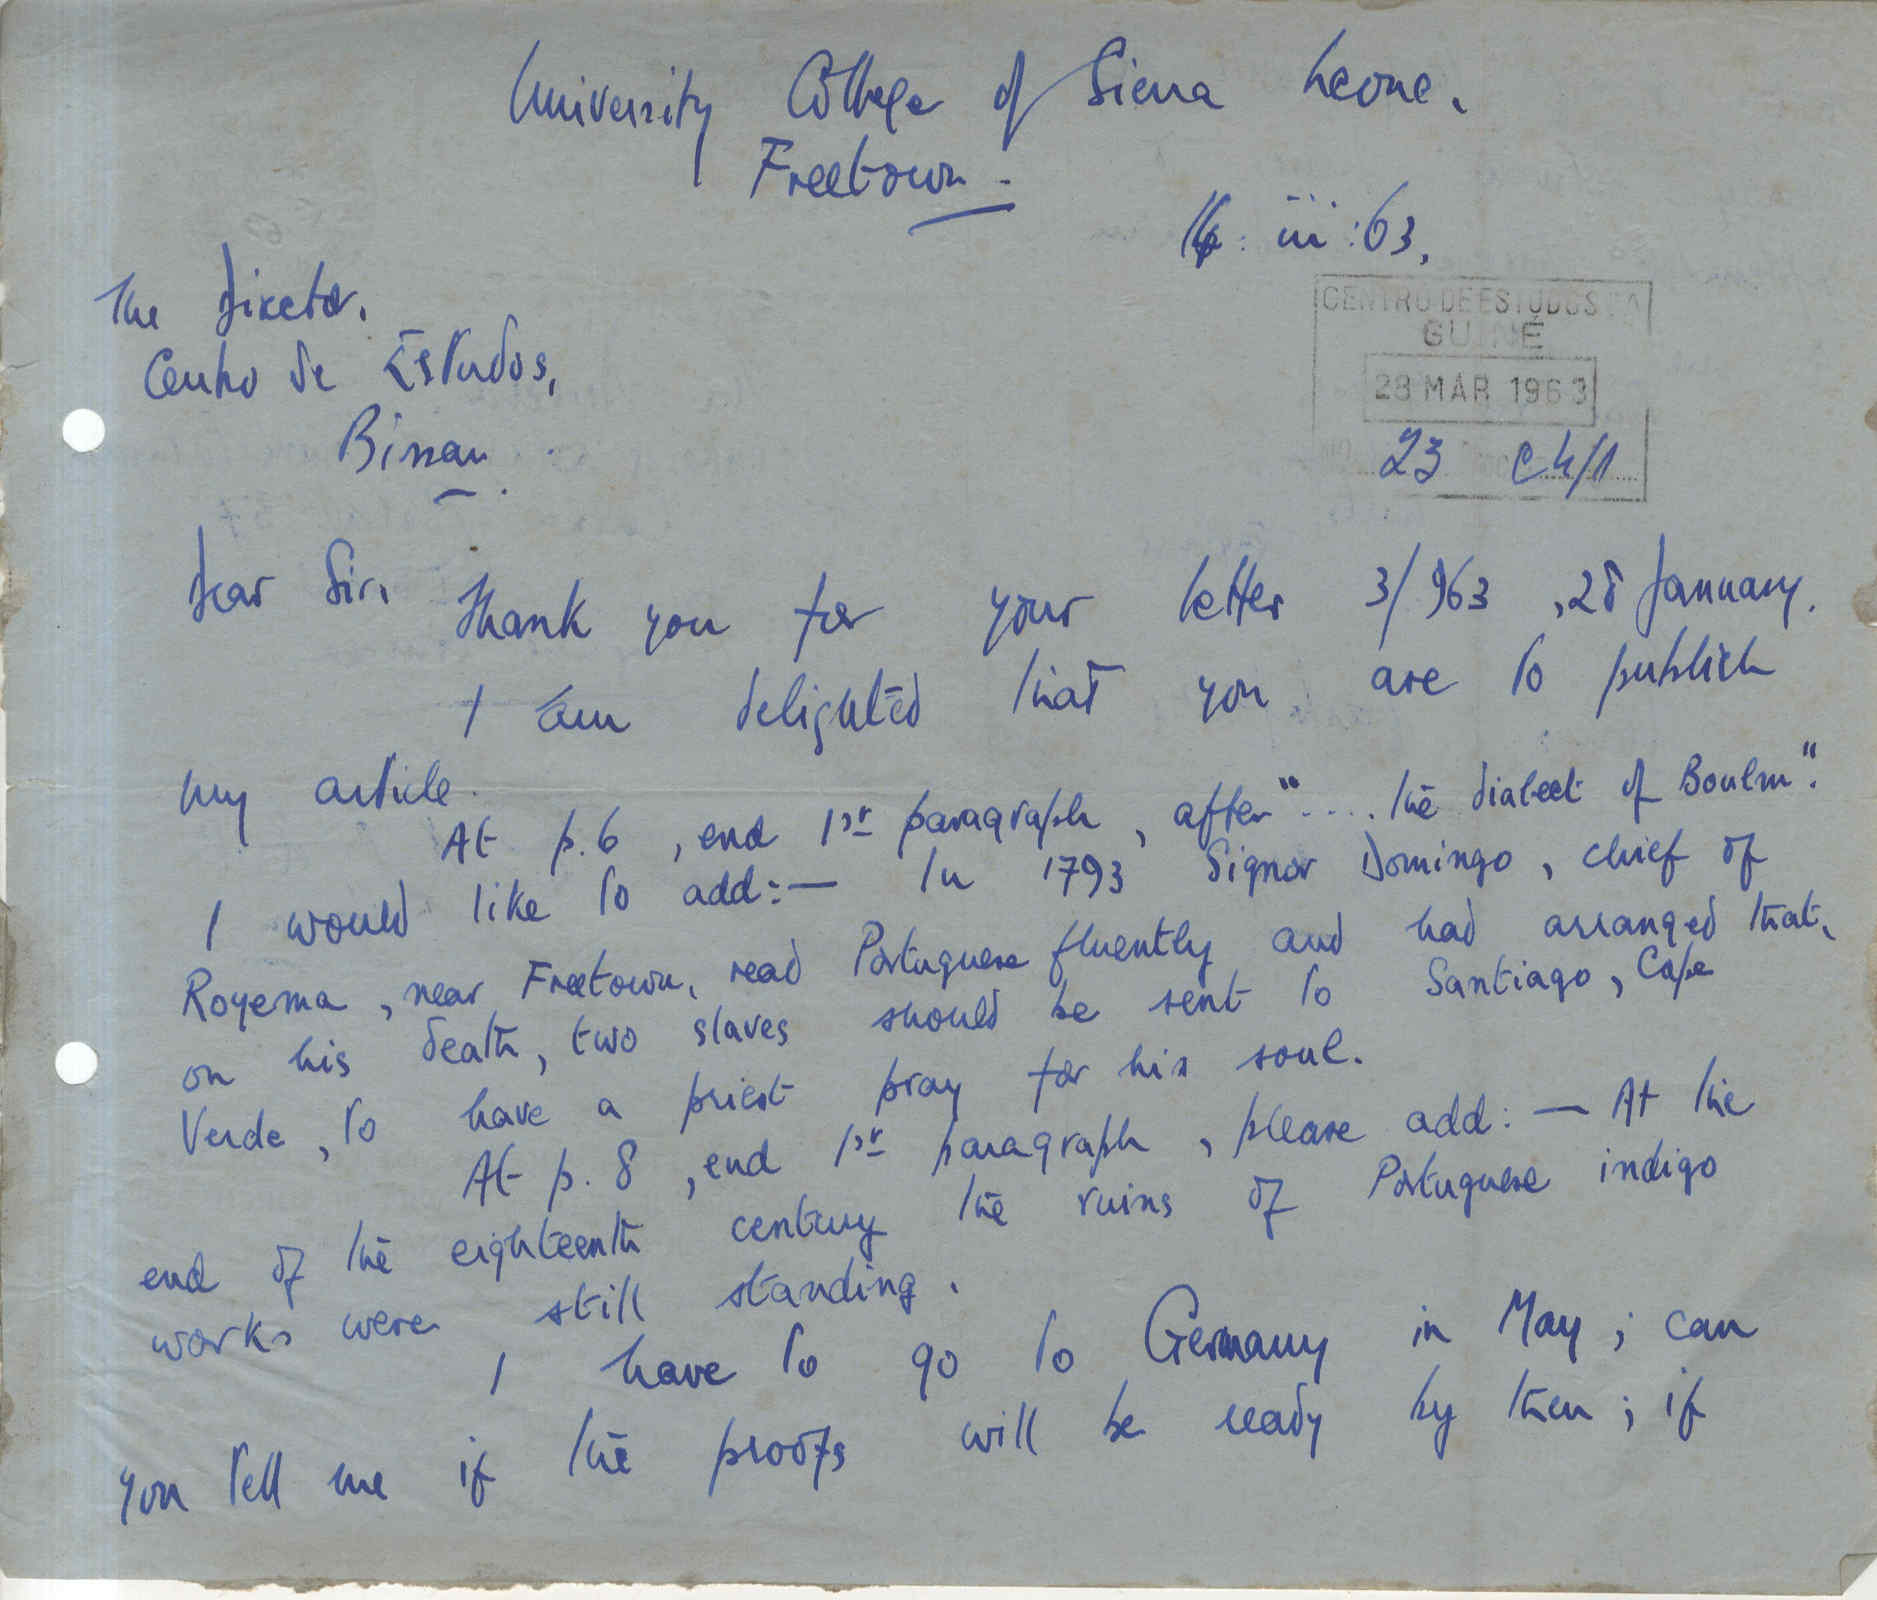 University College of Sierra Leone.
Freetown.
16: iii: 63.
CENTRO DE ESTUDOS DA
GUINÉ
28 MAR 1963
23 C4/1
The Director.
Centro de Estudos,
Bissau.
Dear Sir,
Thank you for your letter 3/963, 28 January.
I am delighted that you are to publish
my article.
At p.6, end 1st paragraph, after "....the dialect of Boulm".
I would like to add:— In 1793 Signor Domingo, chief of
Royema, near Freetown, read Portuguese fluently and had arranged that,
on his death, two slaves should be sent to Santiago, Cape
Verde, to have a priest pray for his soul.
At p. 8, end 1st paragraph, please add:— At the
end of the eighteenth century the ruins of Portuguese indigo
works were still standing.
I have to go to Germany in May; can
you tell me if the proofs will be ready by then; if